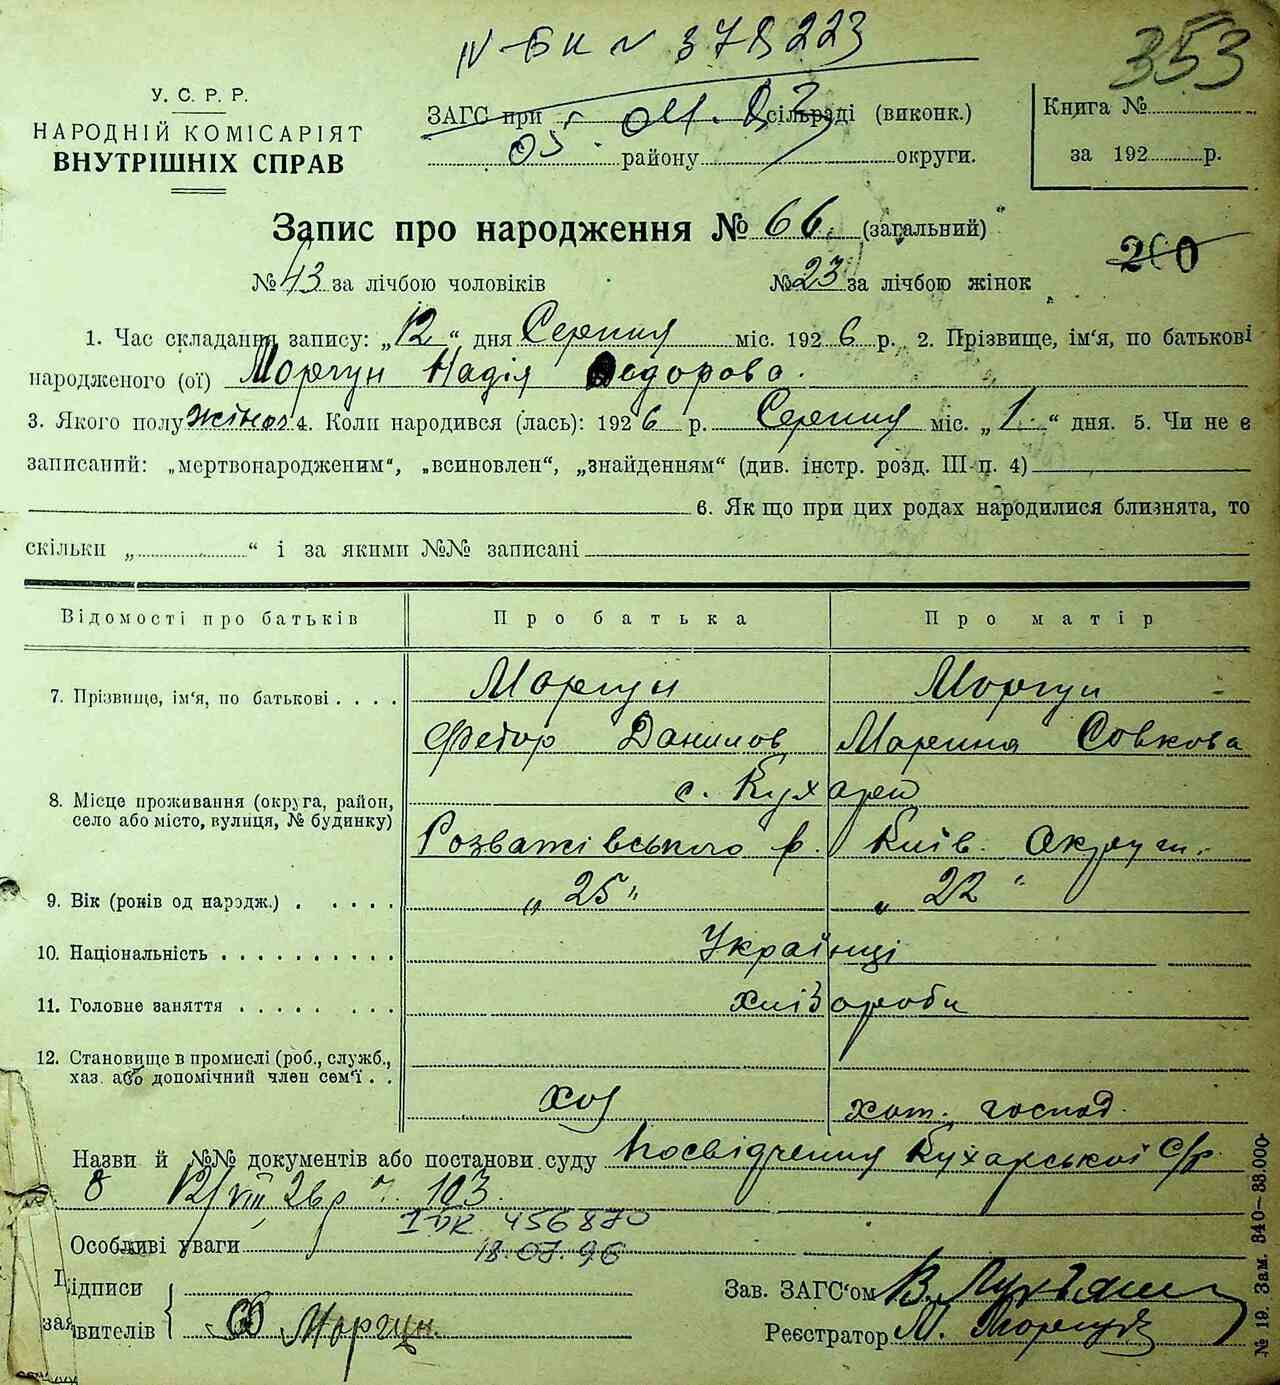 IV-БК № 378223
353
У. С. Р. Р.
НАРОДНІЙ КОМІСАРІЯТ
ВНУТРІШНІХ СПРАВ
ЗАГС при сільраді (виконк.)
району округи.
Книга №
за 192 р.
Запис про народження № 66. (загальний)
200
№ 43 за лічбою чоловіків № 23 за лічбою жінок
1. Час складання запису: „12“ дня Серпня міс. 1926 р. 2. Прізвище, ім‘я, по батькові
народженого (ої) Моргун Надія Федорова.
3. Якого полу жіноч. 4. Коли народився (лась): 1926 р. Серпня міс. „1“ дня. 5. Чи не є
записаний: „мертвонародженим“, „всиновлен“, „знайденням“ (див. інстр. розд. III п. 4)
6. Як що при цих родах народилися близнята, то
скільки „ “ і за якими №№ записані
Відомості про батьків Про батька Про матір
7. Прізвище, ім‘я, по батькові Моргун Моргун
Федор Данилов Марина Совкова
8. Місце проживання (округа, район, с. Кухарі
село або місто, вулиця, № будинку) Розважівського р. Київ. Округи.
9. Вік (років од народж.) „25“ „22“
10. Національність Українці
11. Головне заняття хлібороби
12. Становище в промислі (роб., служб.,
хаз. або допомічний член сем‘ї хаз хат. господ.
Назви й №№ документів або постанови суду Посвідчення Кухарської С/р.
12/VIII 26 р № 103.
456870
Особливі уваги 18.07.96
Підписи
заявителів Моргун.
Зав. ЗАГС‘ом В.
Реєстратор М.
№ 19. Зам. 340—88.000-